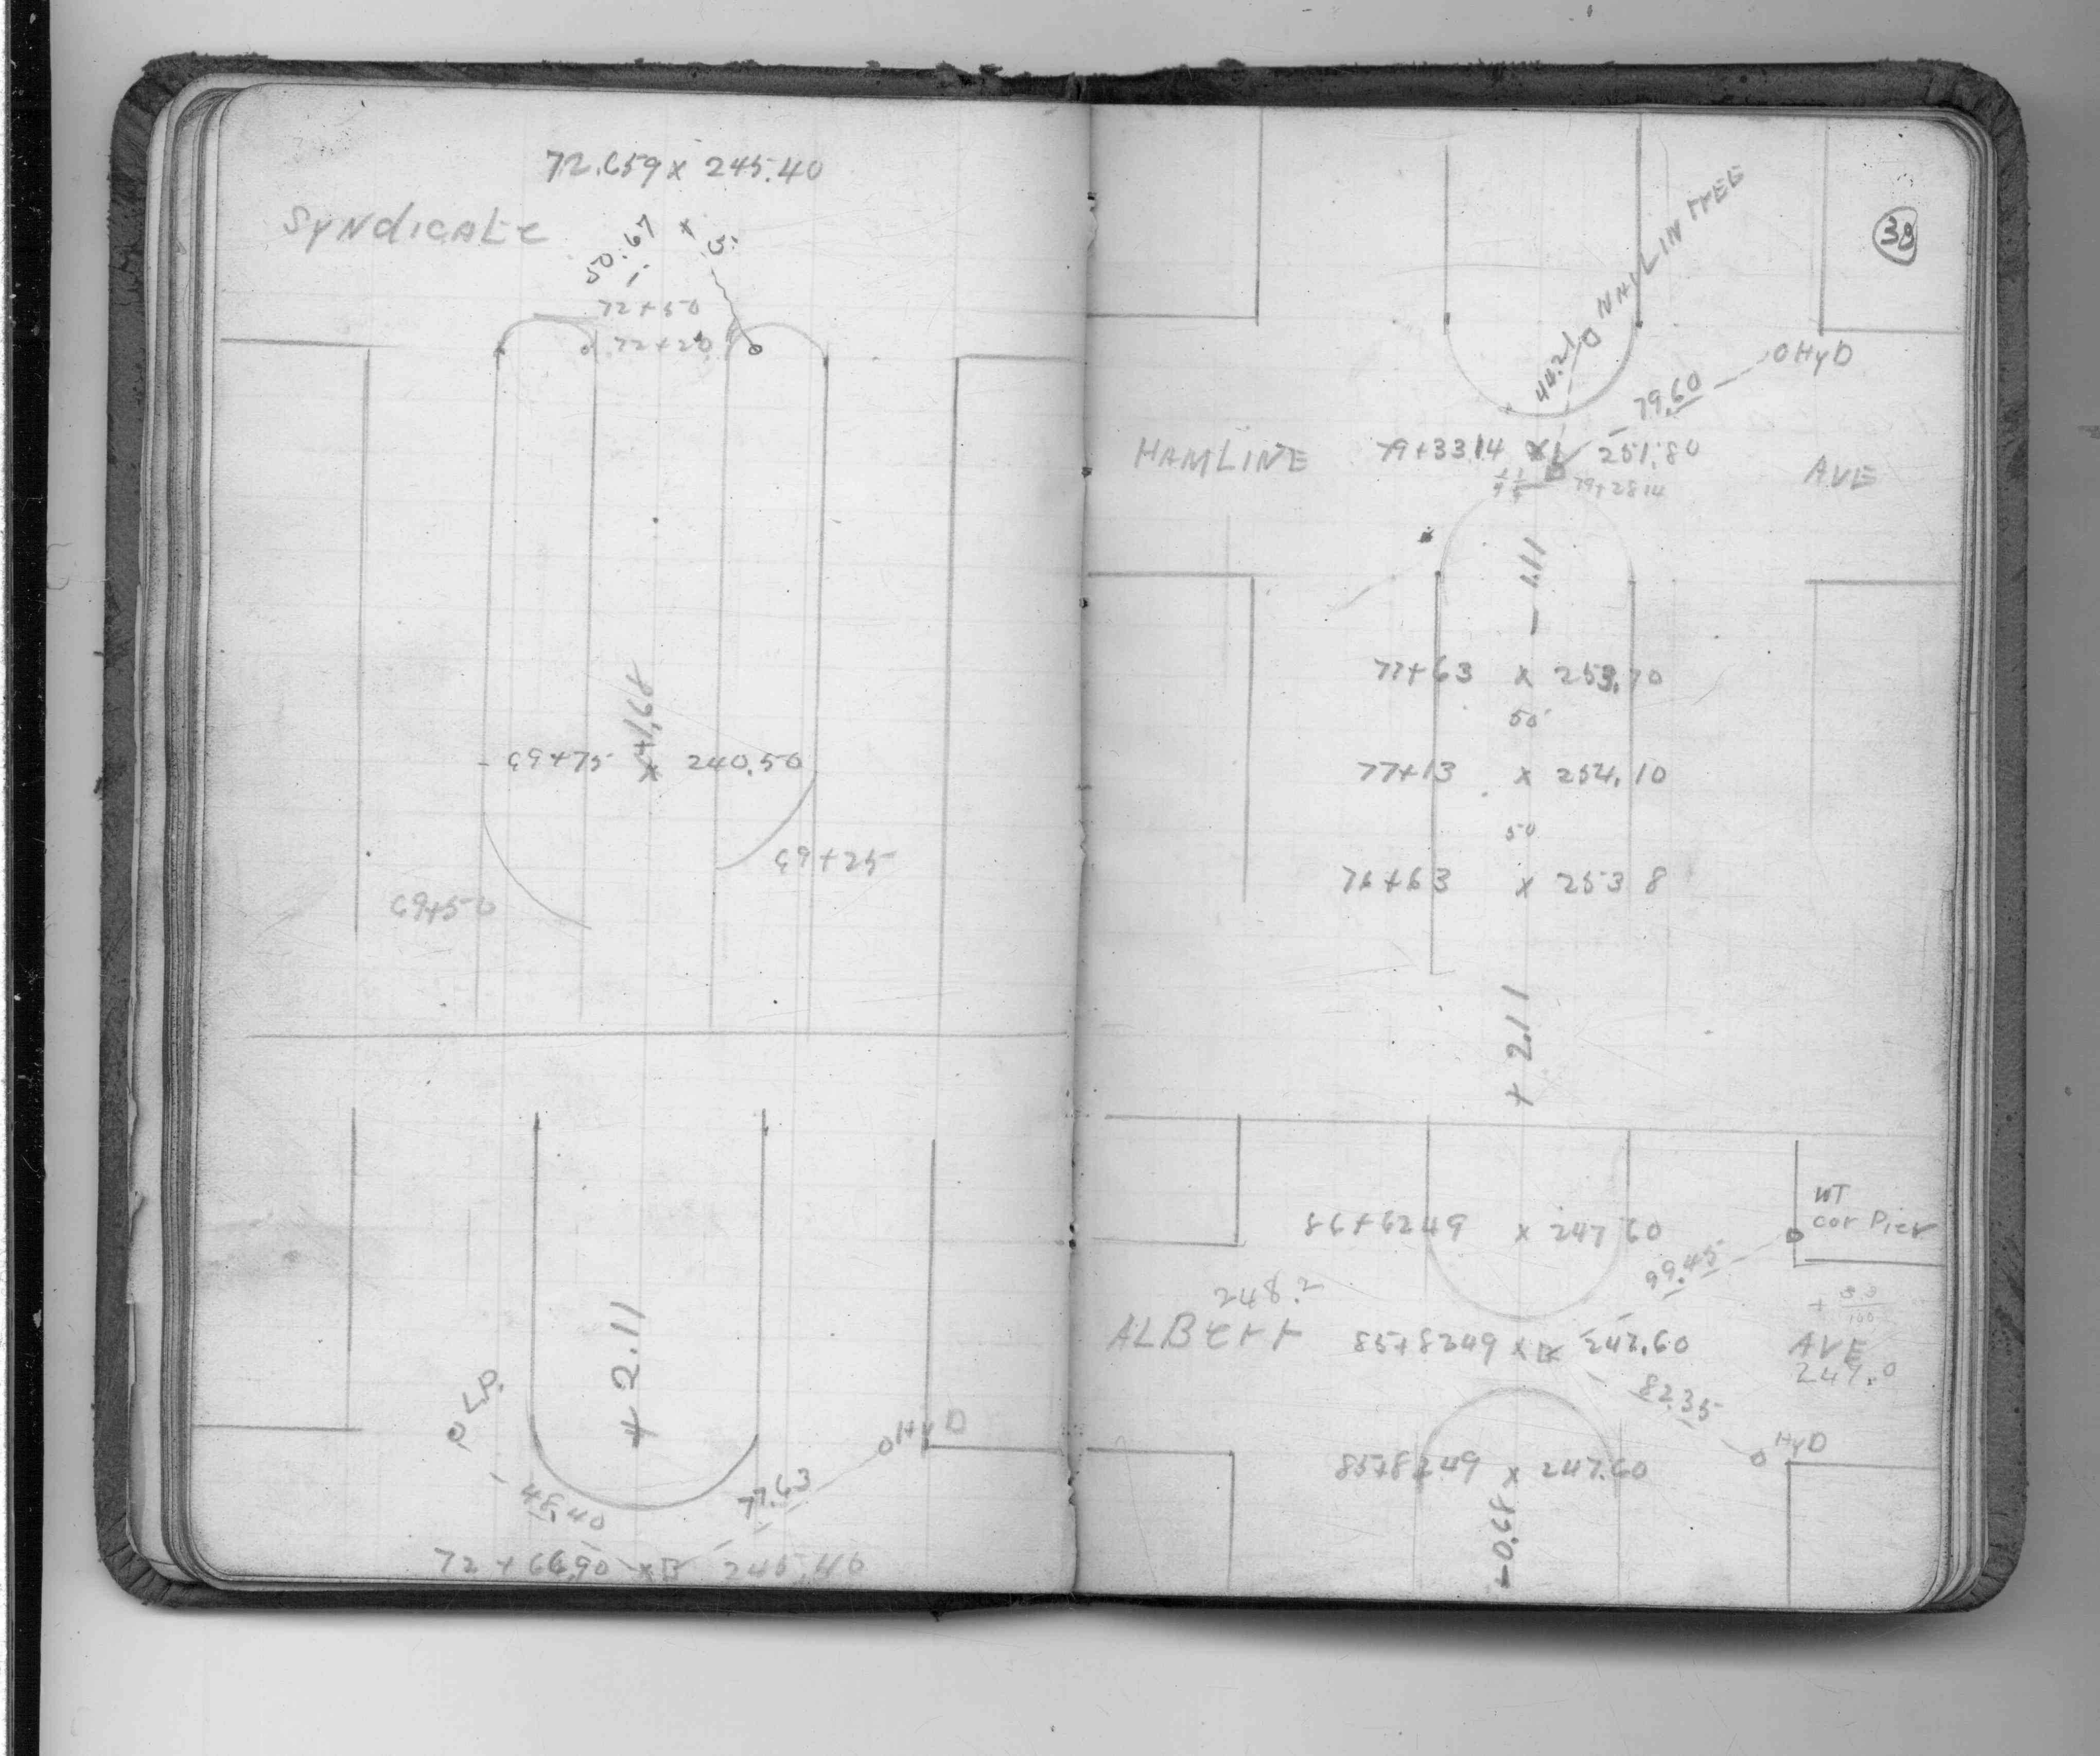 72.659 x 245.40
Syndicate
50.67
x 5
72+50
72+20
+1.68
69+75 x 240.50
69+25
69+50
+2.11
o L.P.
o HyD
48.40
77.63
72+66.90 x 245.40
38
NAIL IN TREE
44.21
o HyD
79.60
HAMLINE 79+33.14 x 251.80 AVE
79+28.14
- 1.11
77+63 x 253.70
50
77+13 x 254.10
50
76+63 x 253 8
+2.11
WT
cor Pier
86+6249 x 247 60
99.45
248.2
+ 33/100
ALBert 85+8249 x 247.60 AVE
247.0
82.35
HyD
85+8249 x 247.60
-0.68